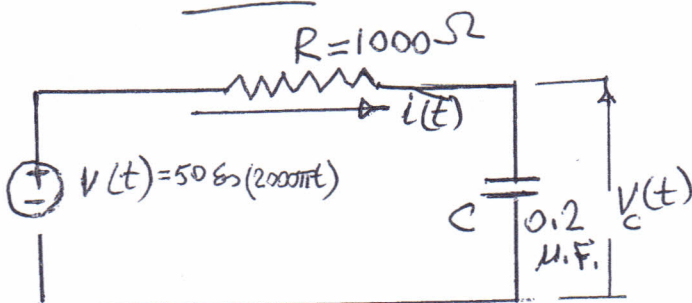 R=1000Ω
i(t)
V(t)=50 Cos(2000πt)
C 0.2 μ.F.
V_c(t)